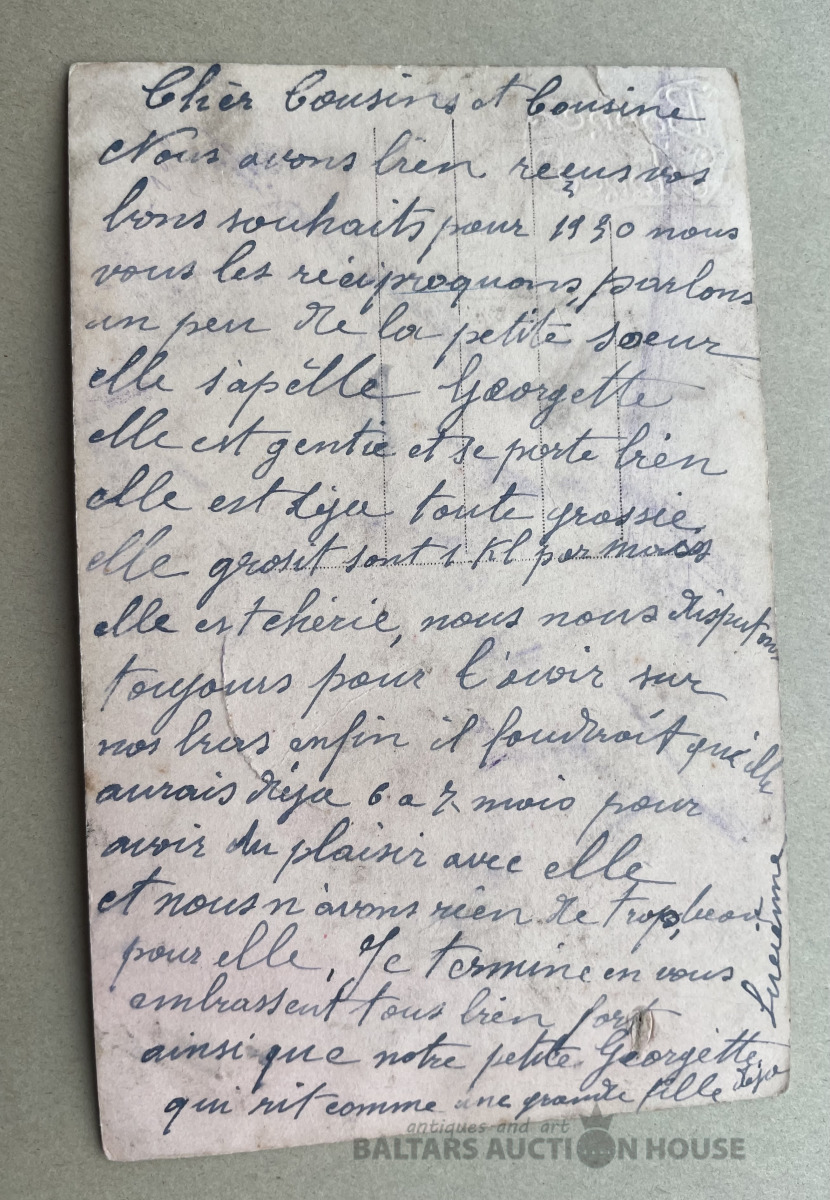 Chèr Cousins et Cousine
Nous avons bien reçus vos
bons souhaits pour 1930 nous
vous les réciproquons, parlons
un peu de la petite soeur
elle s'apèlle Georgette
elle est gentie et se porte bien
elle est deja toute grossie
elle grosit sont 1 Kl par mois
elle est chérie, nous nous disputons
toujours pour l'avoir sur
nos bras enfin il foudrait qu'elle
aurais déja 6 a 7 mois pour
avoir du plaisir avec elle
et nous n'avons rien de trop beau
pour elle, Je termine en vous
embrassent tous bien fort
ainsi que notre petite Georgette
qui rit comme une grande fille deja
Lucienne
antiques and art
BALTARS AUCTION HOUSE